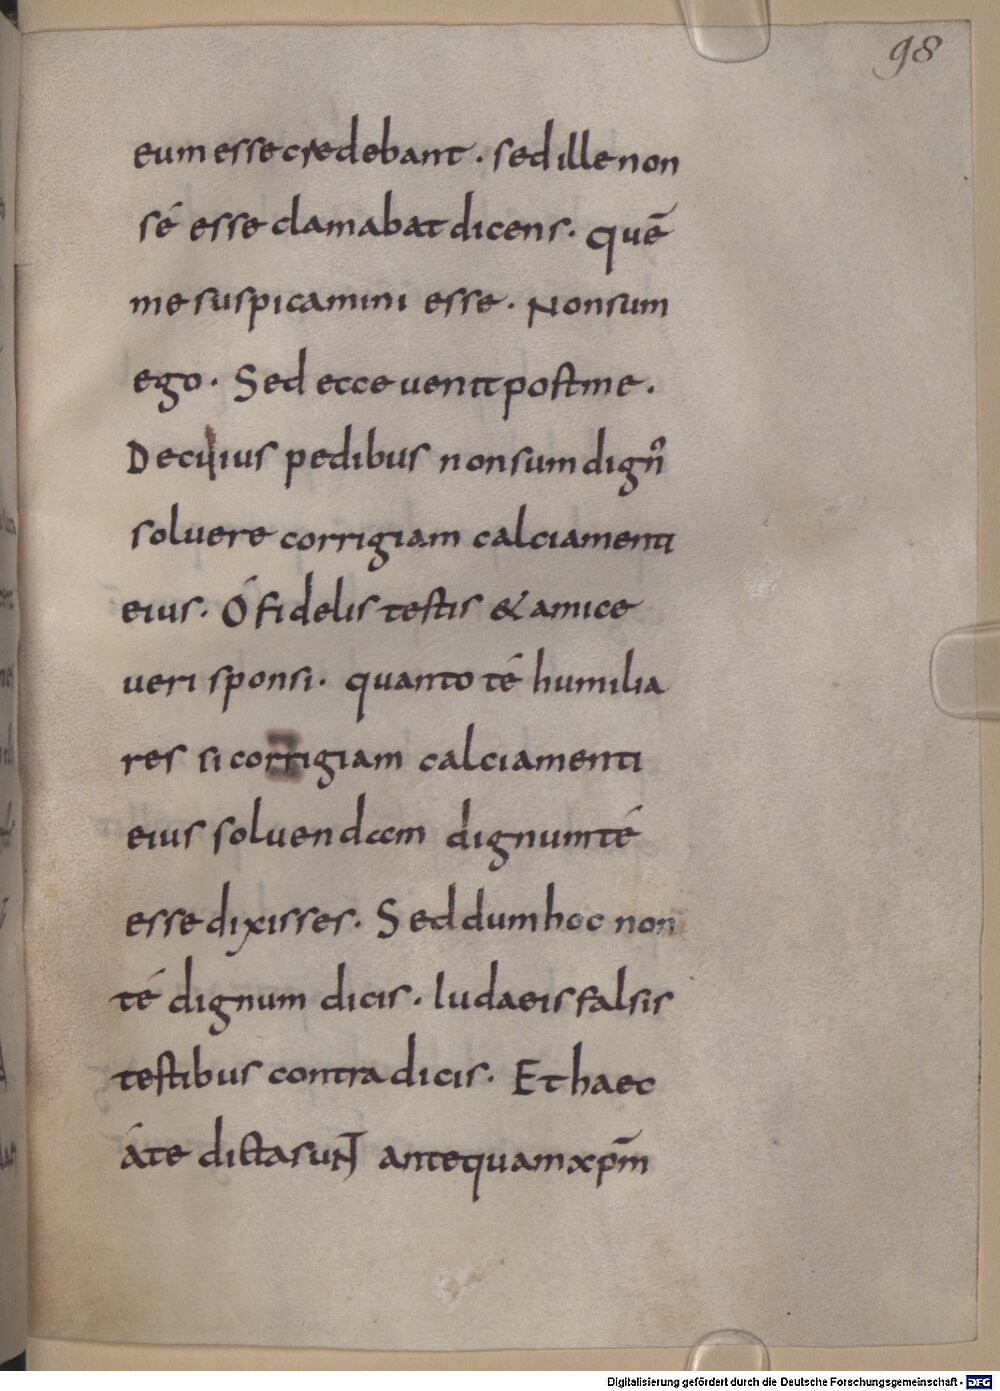 98
eum esse credebant. sed ille non
sé esse clamabat dicens. quē
me suspicamini esse. Non sum
ego. Sed ecce uenit post me.
De cuius pedibus non sum dignꝰ
soluere corrigiam calciamenti
eius. Ó fidelis testis & amice
ueri sponsi. quanto té humilia
res si corrigiam calciamenti
eius soluendam dignum té
esse dixisses. Sed dum hoc non
té dignum dicis. Iudaeis falsis
testibus contradicis. Et haec
á te dicta sunt antequam xp̄m
Digitalisierung gefördert durch die Deutsche Forschungsgemeinschaft - DFG